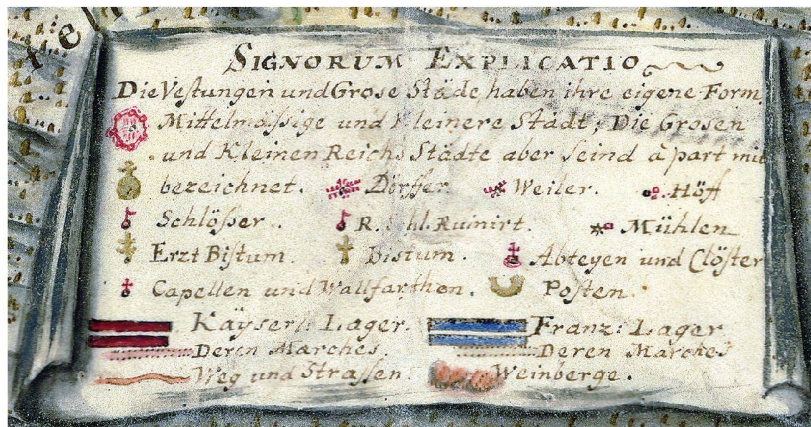 reh
SIGNORUM EXPLICATIO
Die Vestungen und Grose Städe, haben ihre eigene Form,
Mittelmässige und Kleinere Städt; Die Grosen
und Kleinen Reichs Städte aber seind à part mit
bezeichnet. Dörffer. Weiler. Höff
Schlösser. R. Schl. Ruinirt. Mühlen
Erzt Bistum. Bistum. Abteyen und Clöster
Capellen und Wallfarthen. Posten.
Kayserl: Lager. Franz: Lager
Deren Marches. Deren Marches
Weg und Strassen. Weinberge.